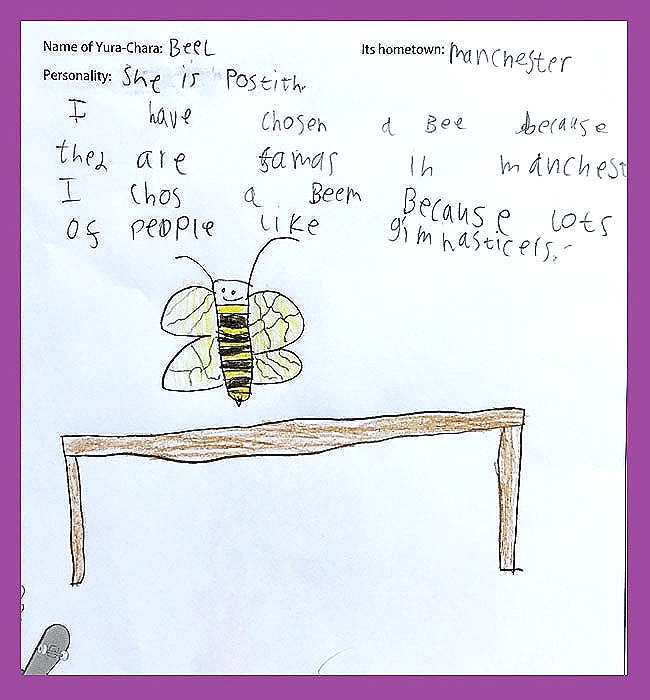 Name of Yura-Chara: BEEL
Its hometown: manchester
Personality: She is Postith.
I have chosen a Bee because
they are famas in manchest
I chos a Beem Because lots
of people like gimnasticers.